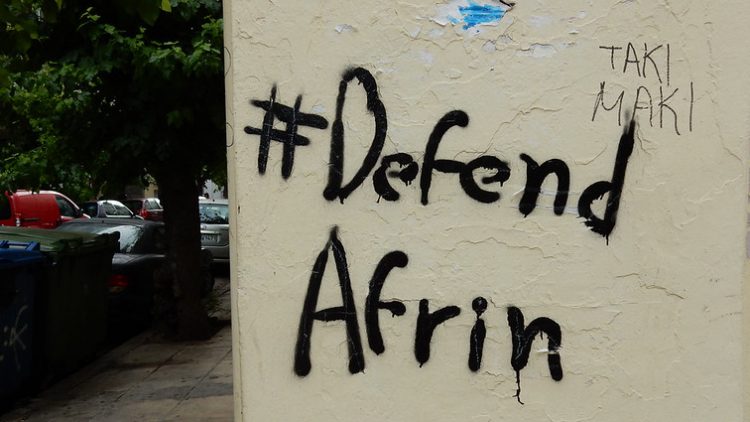 #Defend
Afrin
TAKI
MAKI